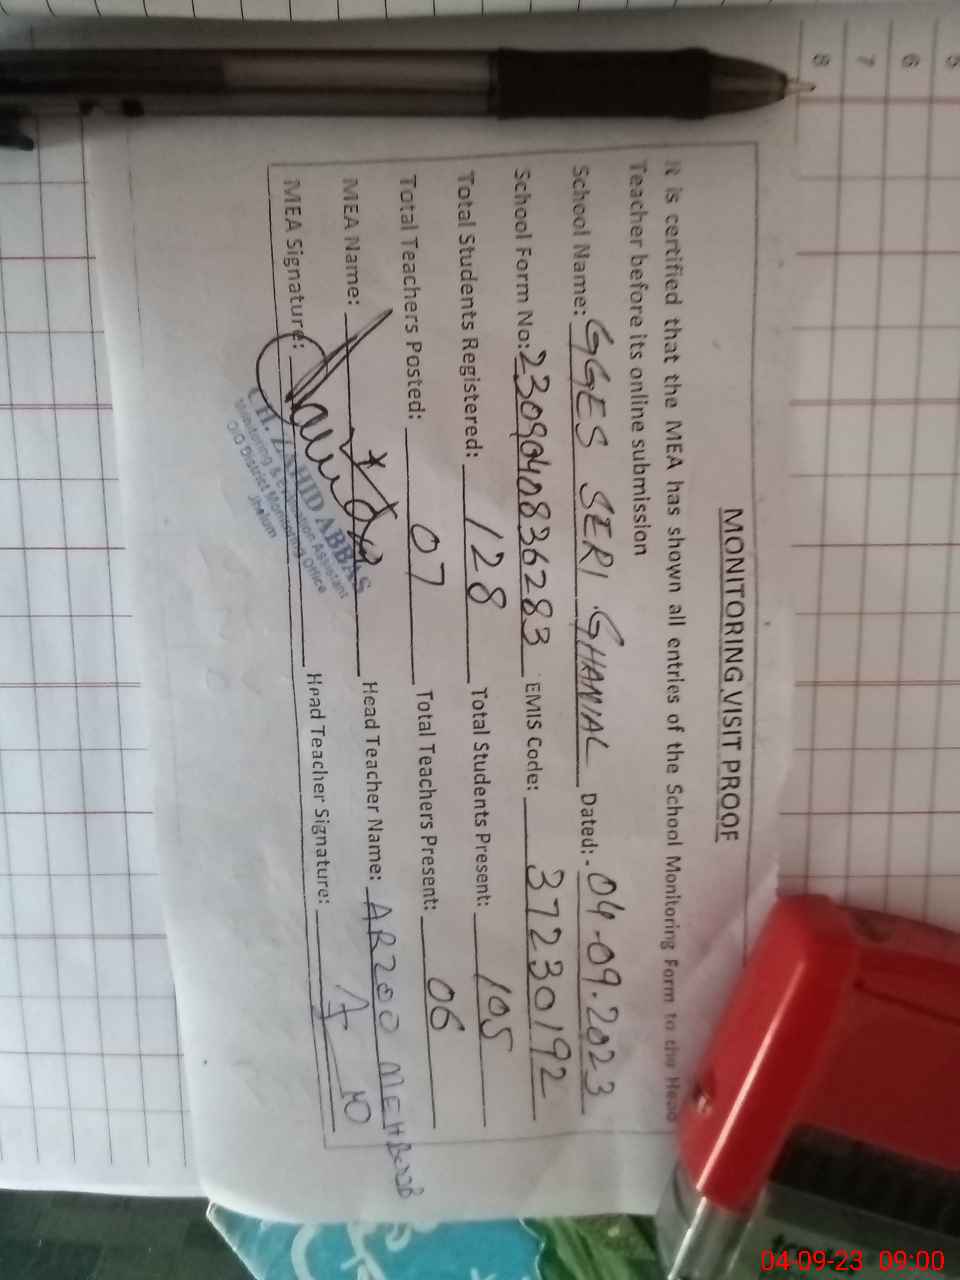 MONITORING VISIT PROOF
It is certified that the MEA has shown all entries of the School Monitoring Form to the Head
Teacher before its online submission
School Name: GGES SERI GHANIAL Dated:- 04-09-2023
School Form No: 2309040836283 EMIS Code: 37230192
Total Students Registered: 128 Total Students Present: 105
Total Teachers Posted: 07 Total Teachers Present: 06
MEA Name: Head Teacher Name: ARZOO MEHBOOB
MEA Signature: Head Teacher Signature:
CH. ZAHID ABBAS
Monitoring & Evaluation Assistant
O/O District Monitoring Office
Jhelum
5
6
7
8
04-09-23 09:00